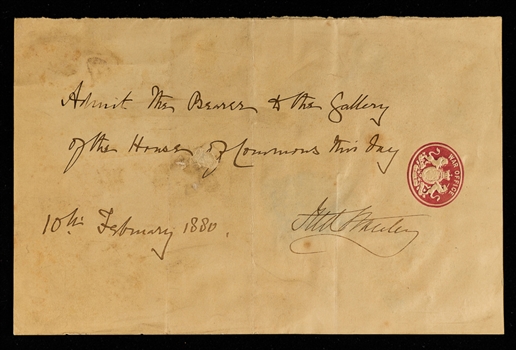 Admit the Bearer to the Gallery
of the House of Commons this day
WAR OFFICE
10th February 1880.